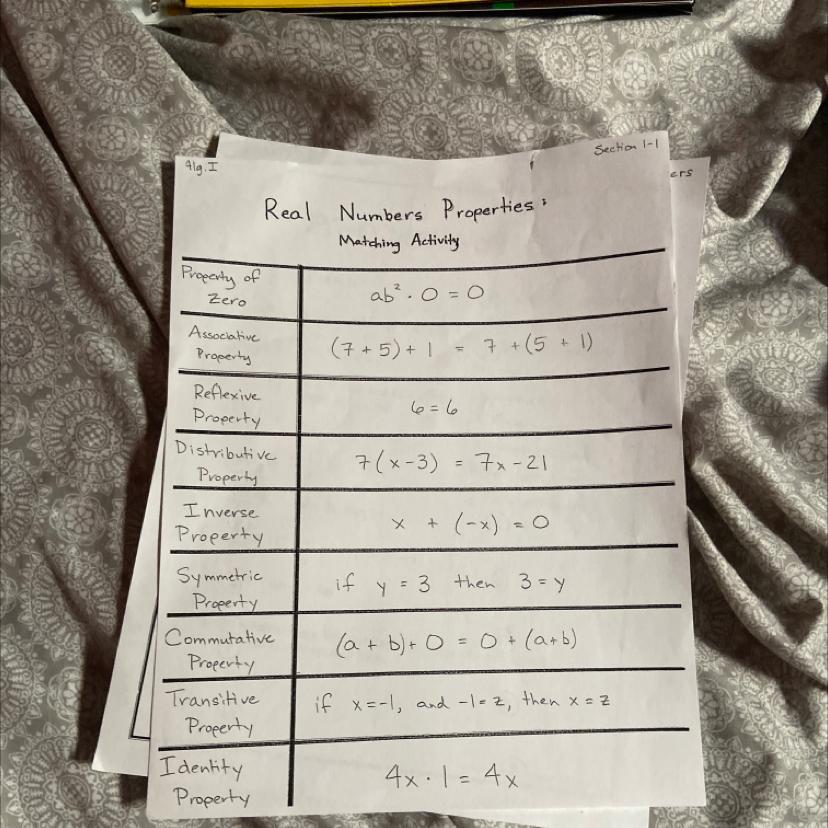 Alg. I
Section 1-1
ers
Real Numbers Properties:
Matching Activity
Property of
Zero
ab² · 0 = 0
Associative
Property
(7 + 5) + 1 = 7 + (5 + 1)
Reflexive
Property
6 = 6
Distributive
Property
7(x - 3) = 7x - 21
Inverse
Property
x + (-x) = 0
Symmetric
Property
if y = 3 then 3 = y
Commutative
Property
(a + b) + 0 = 0 + (a + b)
Transitive
Property
if x = -1, and -1 = z, then x = z
Identity
Property
4x · 1 = 4x